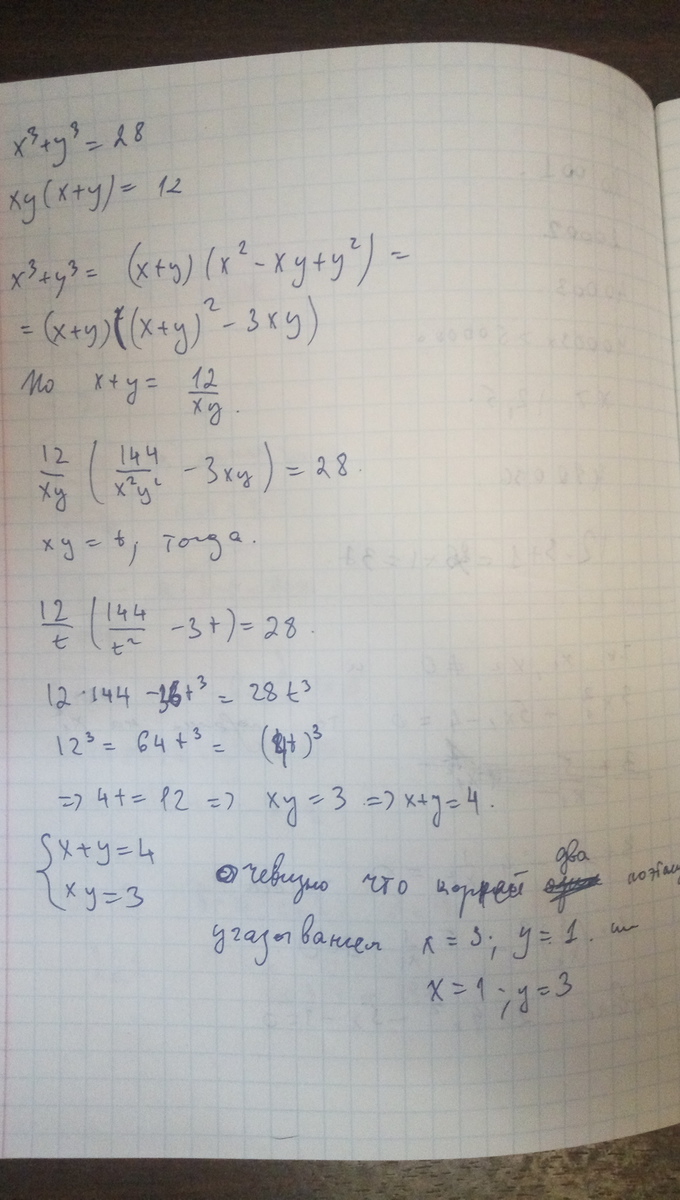 x³+y³ = 28
xy(x+y) = 12
x³+y³ = (x+y)(x² - xy + y²) =
= (x+y)((x+y)² - 3xy)
Но x+y = 12/xy.
12/xy (144/x²y² - 3xy) = 28.
xy = t, тогда.
12/t (144/t² - 3t) = 28.
12·144 - 36t³ = 28t³
12³ = 64t³ = (4t)³
=> 4t = 12 => xy = 3 => x+y = 4.
{ x+y=4
{ xy=3
Очевидно что корней два поэтому
угадываем x = 3; y = 1. или
x = 1; y = 3